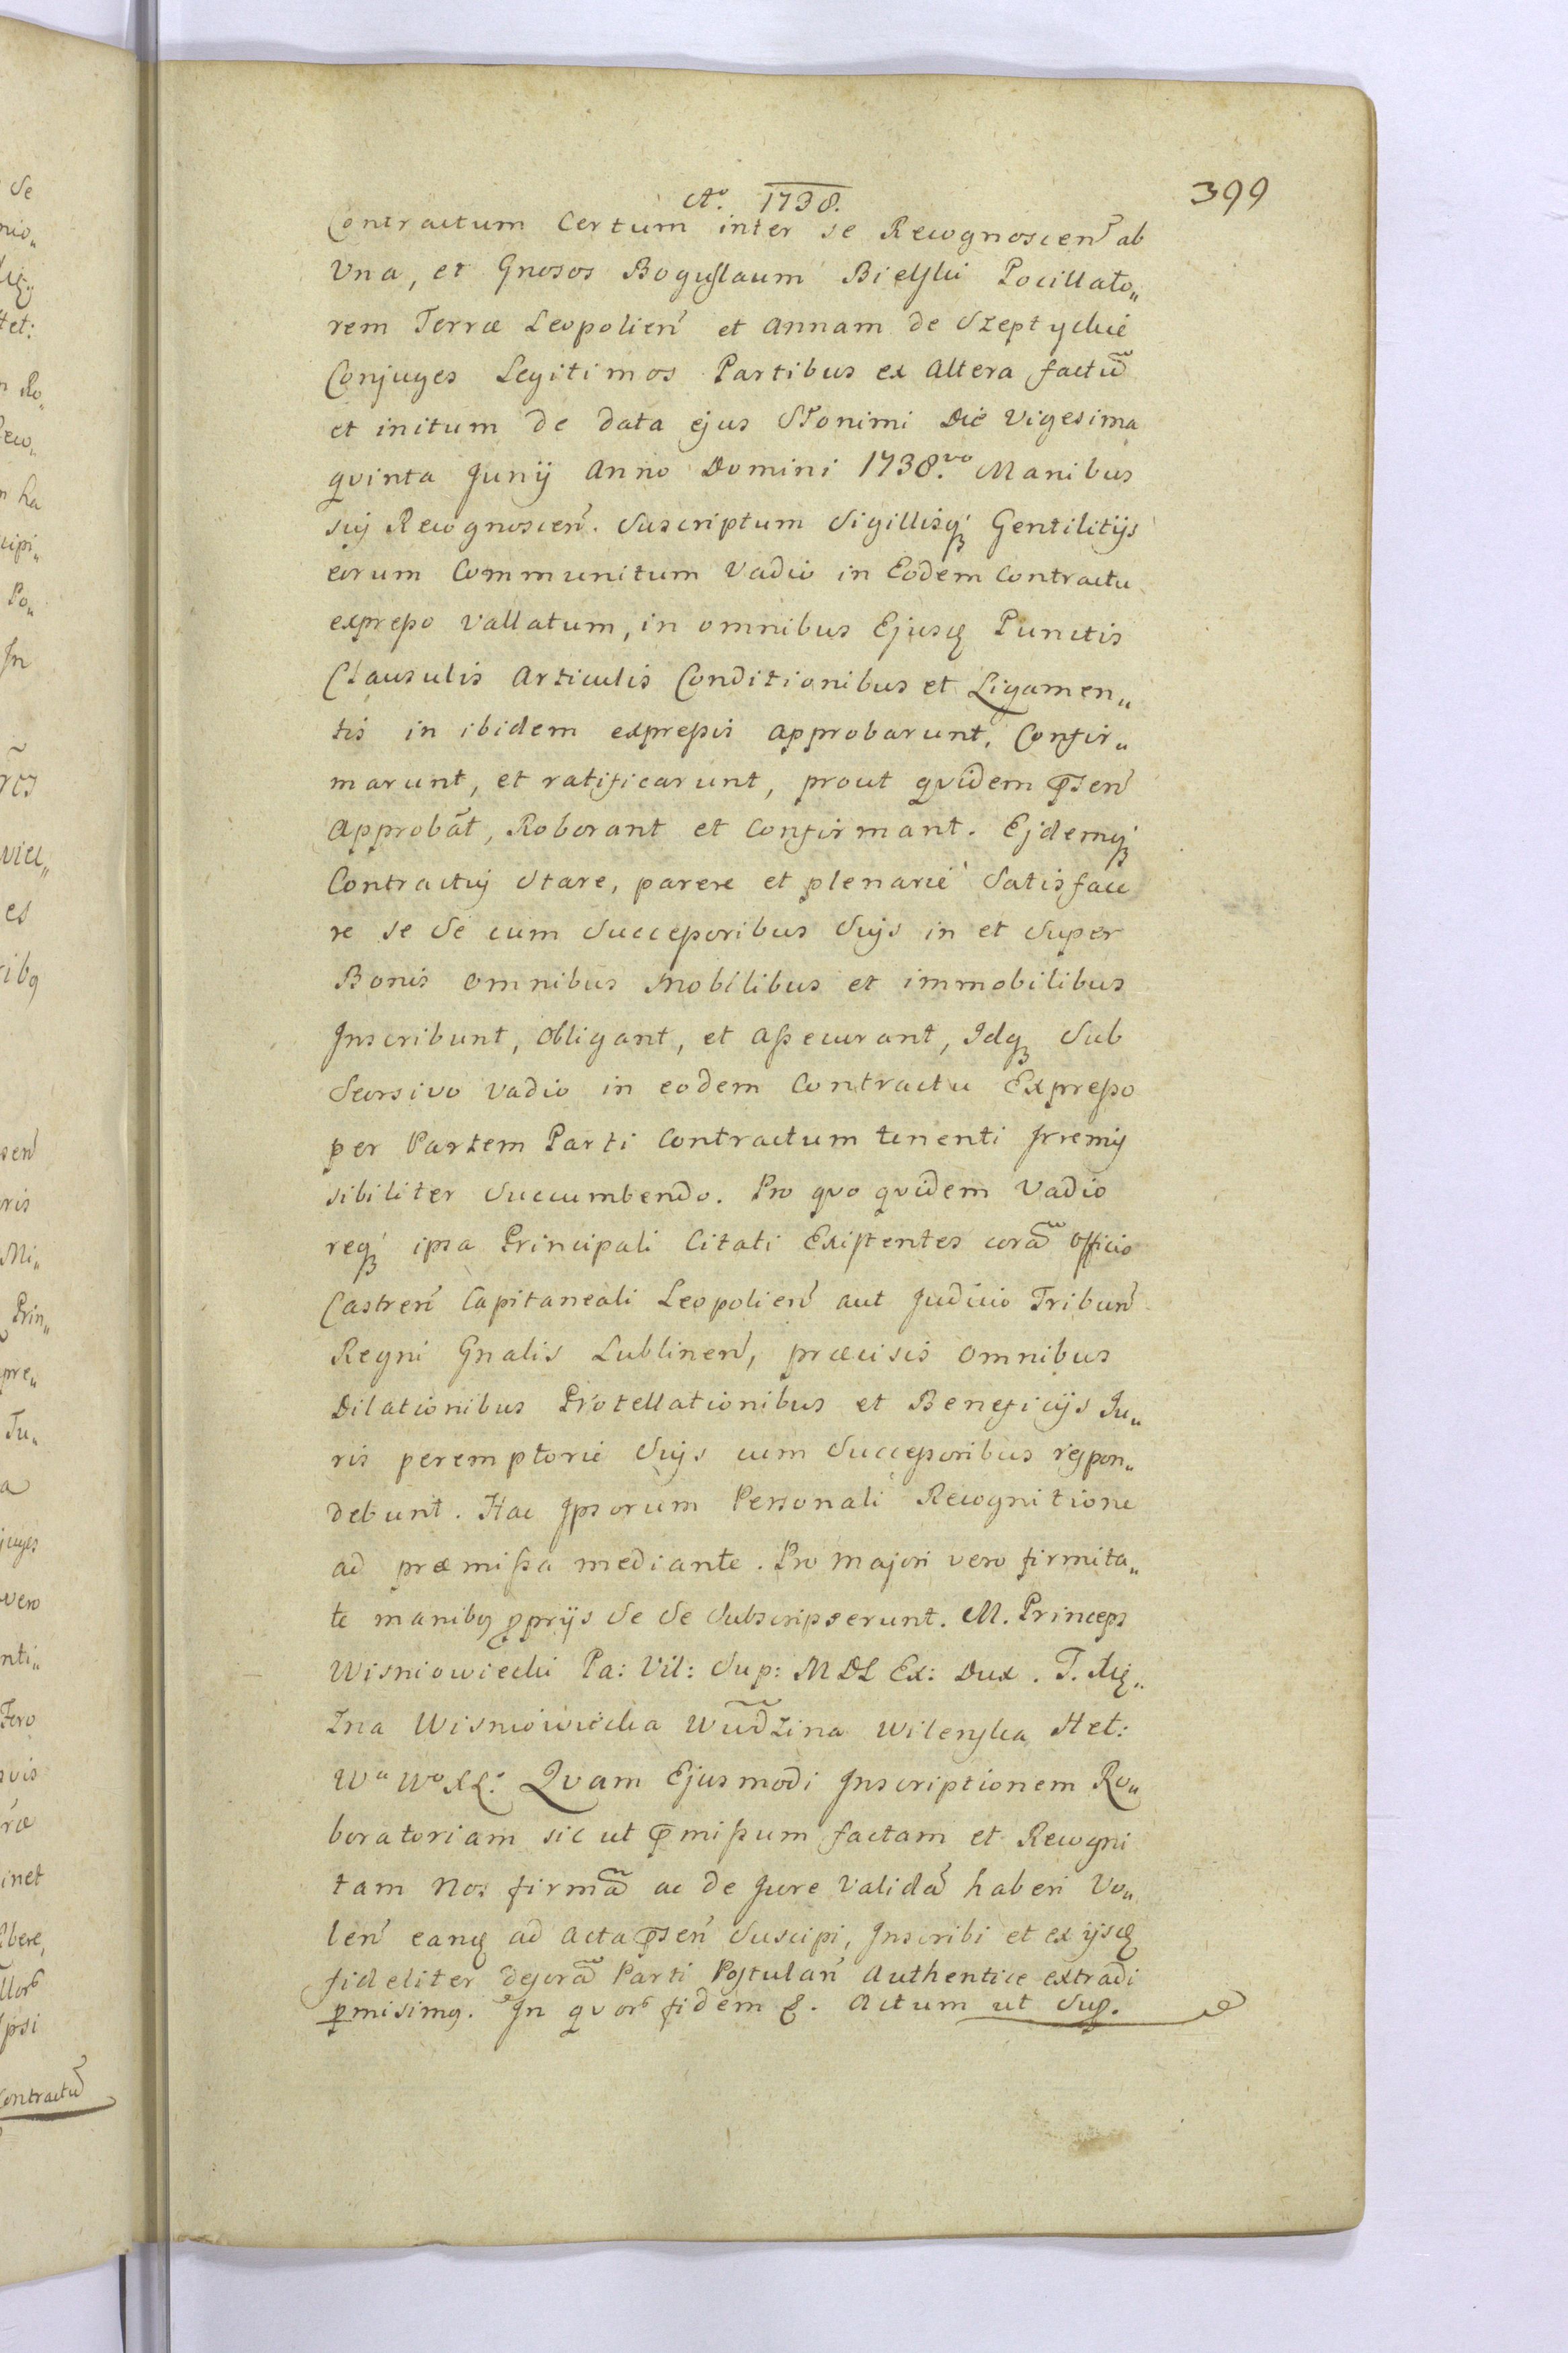 Aº. 1738.
399
Contractum Certum inter se Recognoscen̄ ab
Una, et Gnosos Boguslaum Bielski Pocillato„
rem Terræ Leopolien̄ et Annam de Szeptyckie
Conjuges Legitimos Partibus ex Altera factū
et initum de data ejus Słonimi Die Vigesima
quinta Junij Anno Domini 1738.vo Manibus
suis Recognoscen̄. Suscriptum Sigillisq; Gentilitijs
eorum Communitum Vadio in Eodem Contractu
expresso Vallatum, in omnibus Ejusq; Punctis
Clausulis Articulis Conditionibus et Ligamen„
tis in ibidem expressis approbarunt, Confir„
marunt, et ratificarunt, prout quidem p̄sen̄
Approbāt, Roborant et Confirmant. Ejdemq;
Contractui Stare, parere et plenarie Satisface
re se Se cum Successoribus Suis in et Super
Bonis omnibus Mobilibus et immobilibus
Inscribunt, Obligant, et Assecurant, Idq; Sub
Seorsivo Vadio in eodem Contractu Expresso
per Partem Parti Contractum tenenti Irremis
sibiliter Succumbendo. Pro quo quidem Vadio
req; ipsa Principali Citati Existentes corā Officio
Castren̄ Capitaneali Leopolien̄ aut Judicio Tribun̄
Regni Gnalis Lublinen̄, præcisis omnibus
Dilationibus Protellationibus et Beneficijs Ju„
ris peremptorie Suis cum Successoribus respon„
debunt. Hac Ipsorum Personali Recognitione
ad præmissa mediante. Pro Majori vero firmita„
te manibq proprijs Se Se Subscripserunt. M. Princeps
Wisniowiecki Pa: Vil: Sup: MDL Ex: Dux. T. Xię„
zna Wisniowiecka Wūdzina Wilenska Het:
Wa Wo XL: Quam Ejusmodi Inscriptionem Ro„
boratoriam sic ut p̄missum factam et Recogni
tam Nos firmā ac de Jure Validā haberi Vo„
len̄ eanq; ad Acta p̄sen̄ Suscipi, Inscribi et ex ijsq;
fideliter desorā Parti Postulan̄ Authentice extradi
p̱misimq. In quorᵇ fidem &. Actum ut Sup.